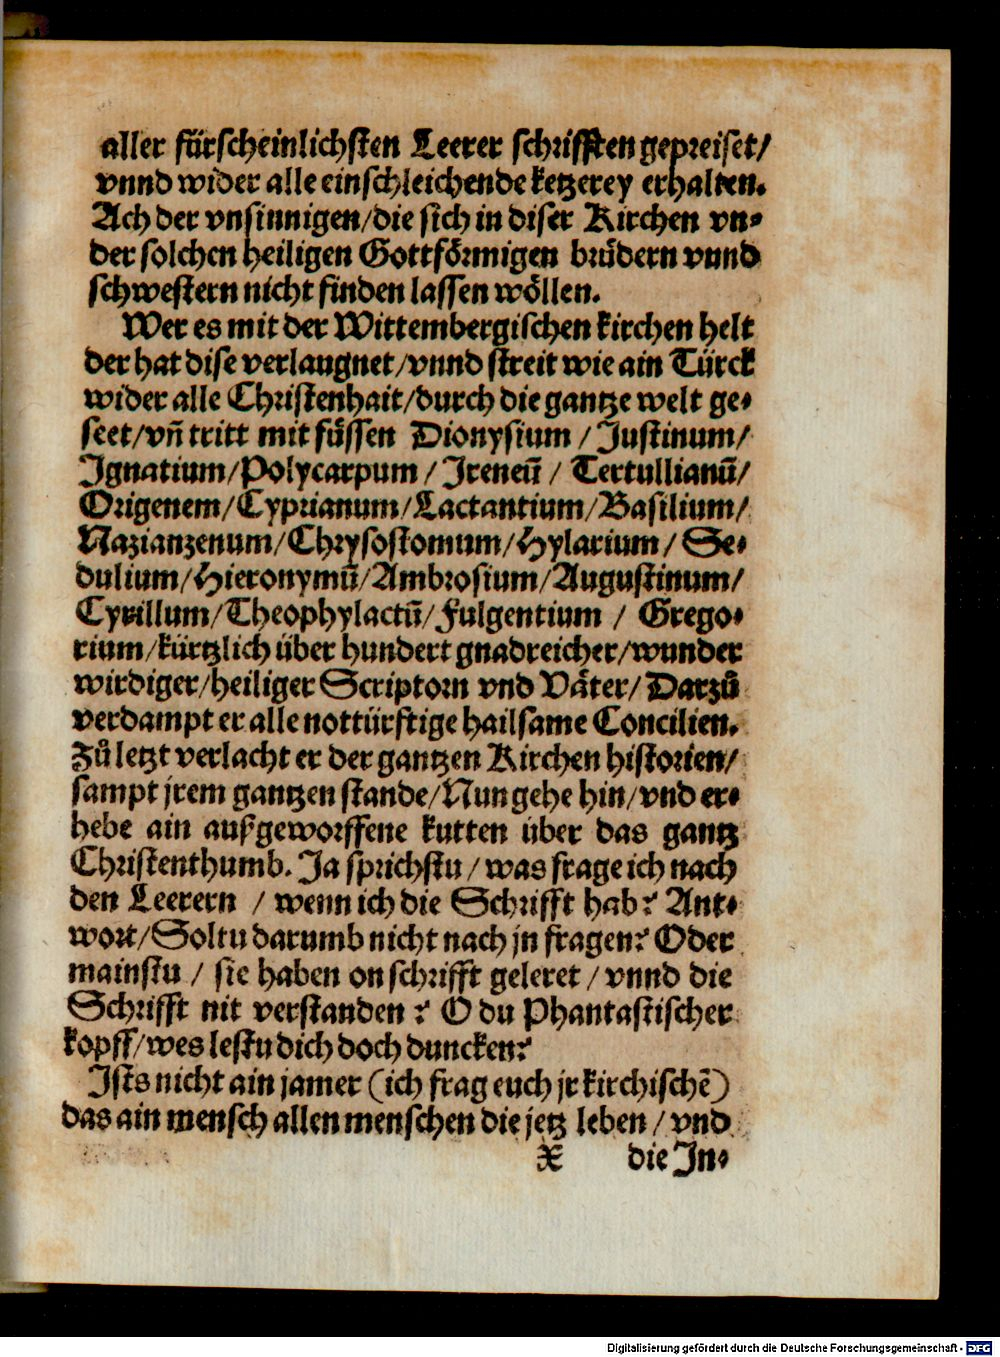 aller fürscheinlichsten Leerer schrifften gepreiset/
vnnd wider alle einschleichende ketzerey erhalten.
Ach der vnsinnigen/die sich in diser Kirchen vn⸗
der solchen heiligen Gottförmigen brůdern vnnd
schwestern nicht finden lassen wöllen.
Wer es mit der Wittembergischen kirchen helt
der hat dise verlaugnet/vnnd streit wie ain Türck
wider alle Christenhait/durch die gantze welt ge⸗
seet/vn̄ tritt mit füssen Dionysium / Justinum/
Ignatium/Polycarpum / Ireneū / Tertullianū/
Origenem/Cyprianum/Lactantium/Basilium/
Nazianzenum/Chrysostomum/Hylarium/ Se⸗
dulium/Hieronymū/Ambrosium/Augustinum/
Cyrillum/Theophylactū/Fulgentium / Grego⸗
rium/kürtzlich über hundert gnadreicher/wunder
wirdiger/heiliger Scriptorn vnd Väter/ Darzů
verdampt er alle nottürftige hailsame Concilien.
Zů letzt verlacht er der gantzen Kirchen historien/
sampt jrem gantzen stande/Nun gehe hin/vnd er⸗
hebe ain außgeworffene kutten über das gantz
Christenthumb. Ja sprichstu / was frage ich nach
den Leerern / wenn ich die Schrifft hab? Ant⸗
wort/Soltu darumb nicht nach jn fragen? Oder
mainstu / sie haben on schrifft geleret / vnnd die
Schrifft nit verstanden ? O du Phantastischer
kopff/wes lestu dich doch duncken?
Ists nicht ain jamer (ich frag euch jr kirchischē)
das ain mensch allen menschen die jetz leben / vnd
X die In⸗
Digitalisierung gefördert durch die Deutsche Forschungsgemeinschaft - DFG